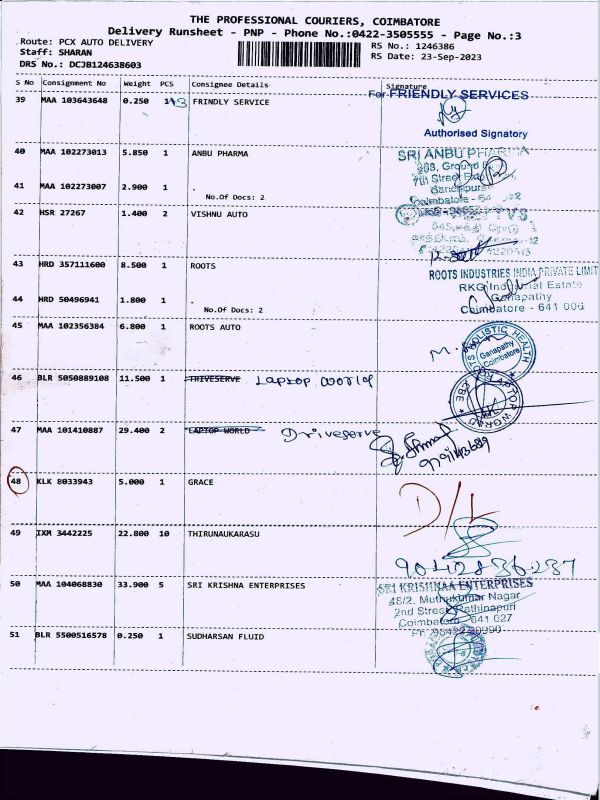 THE PROFESSIONAL COURIERS, COIMBATORE
Delivery Runsheet - PNP - Phone No.:0422-3505555 - Page No.:3
Route: PCX AUTO DELIVERY
Staff: SHARAN
DRS No.: DCJB124638603
RS No.: 1246386
RS Date: 23-Sep-2023
S No Consignment No Weight PCS Consignee Details Signature
39 MAA 103643648 0.250 1 FRINDLY SERVICE
For FRIENDLY SERVICES
Authorised Signatory
40 MAA 102273013 5.850 1 ANBU PHARMA
SRI ANBU PHARMA
Coimbatore
41 MAA 102273007 2.900 1 .
No.Of Docs: 2
42 HSR 27267 1.400 2 VISHNU AUTO
43 HRD 357111600 8.500 1 ROOTS
ROOTS INDUSTRIES INDIA PRIVATE LIMIT
RKG Industrial Estate
Ganapathy
Coimbatore - 641 006
44 HRD 50496941 1.800 1 .
No.Of Docs: 2
45 MAA 102356384 6.800 1 ROOTS AUTO
HOLISTIC HEALTH
Ganapathy
Coimbatore
46 BLR 5050889108 11.500 1 TRIVESERVE Laptop world
47 MAA 101410887 29.400 2 LAPTOP WORLD Driveserve
48 KLK 8033943 5.000 1 GRACE
D/L
49 IXM 3442225 22.800 10 THIRUNAUKARASU
50 MAA 104068830 33.900 5 SRI KRISHNA ENTERPRISES
SRI KRISHNAA ENTERPRISES
48/2. Muthukumar Nagar
2nd Street Rathinapuri
Coimbatore - 641 027
51 BLR 5500516578 0.250 1 SUDHARSAN FLUID